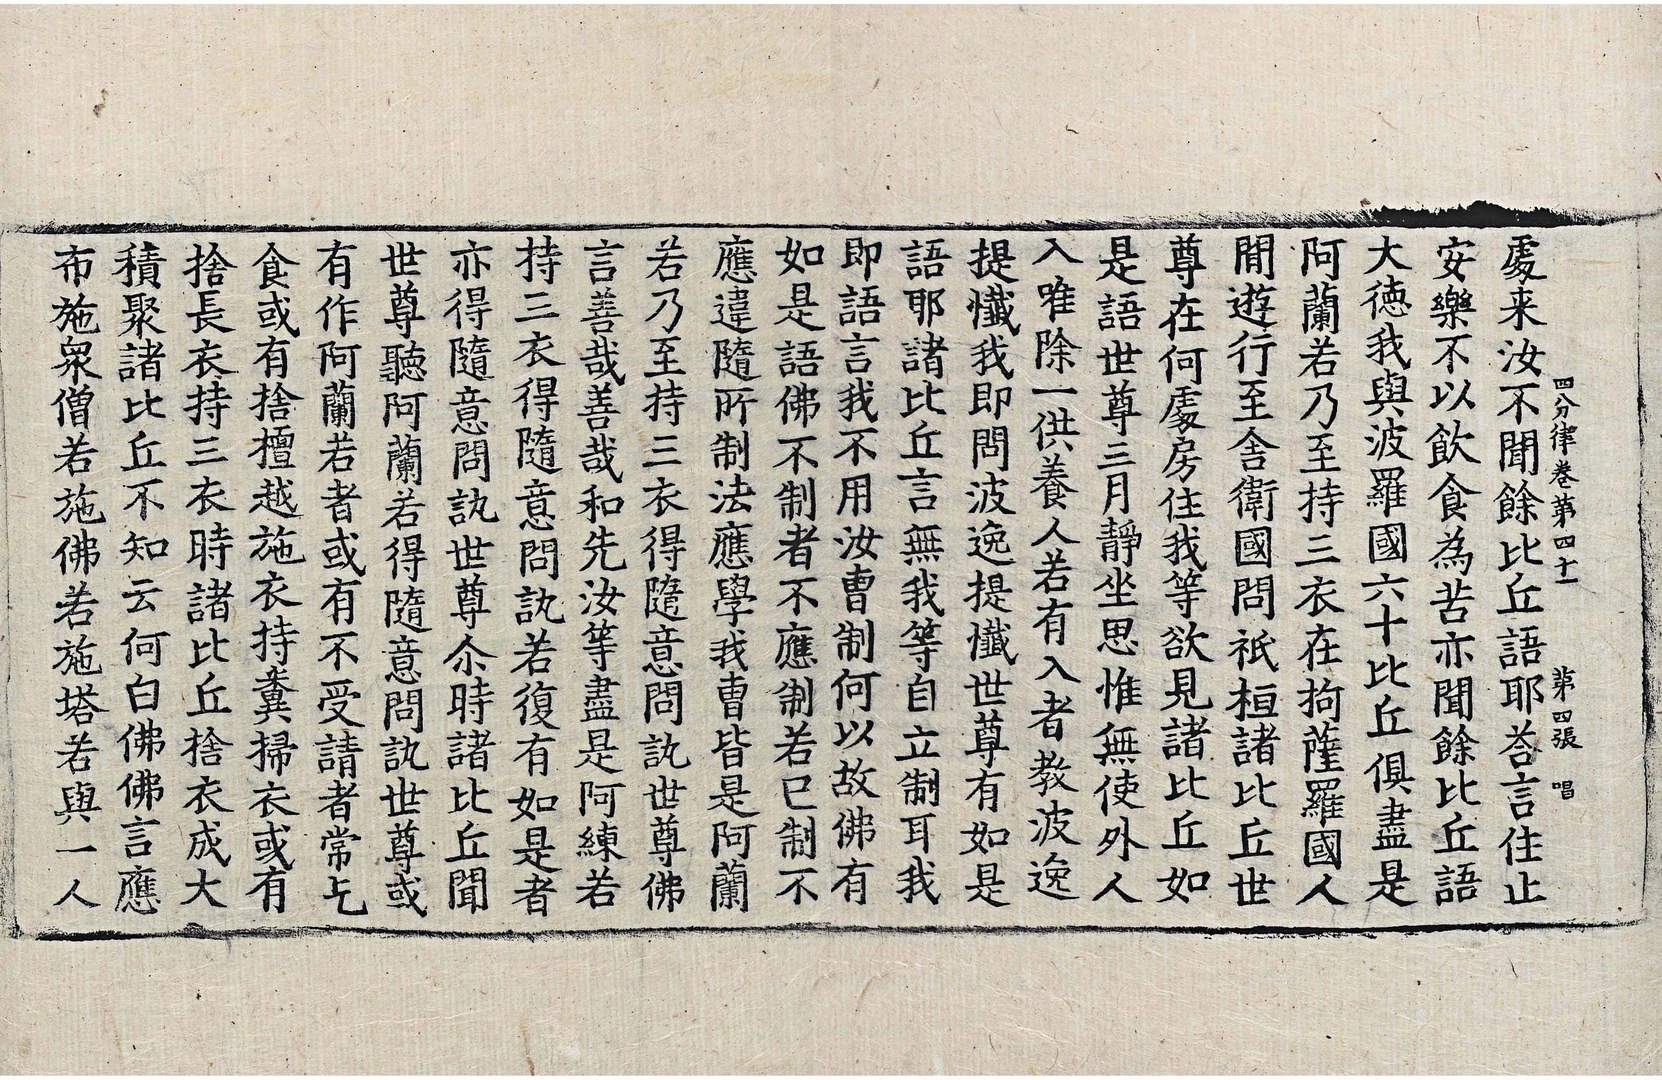 四分律卷第四十一 第四張 唱
處来汝不聞餘比丘語耶荅言住止
安樂不以飲食為苦亦聞餘比丘語
大徳我與波羅國六十比丘俱盡是
阿蘭若乃至持三衣在拘薩羅國人
閒遊行至舍衛國問祇桓諸比丘世
尊在何處房住我等欲見諸比丘如
是語世尊三月靜坐思惟無使外人
入唯除一供養人若有入者教波逸
提懺我即問波逸提懺世尊有如是
語耶諸比丘言無我等自立制耳我
即語言我不用汝曹制何以故佛有
如是語佛不制者不應制若已制不
應違隨所制法應學我曹皆是阿蘭
若乃至持三衣得隨意問訊世尊佛
言善哉善哉和先汝等盡是阿練若
持三衣得隨意問訊若復有如是者
亦得隨意問訊世尊尒時諸比丘聞
世尊聽阿蘭若得隨意問訊世尊或
有作阿蘭若者或有不受請者常乞
食或有捨檀越施衣持糞掃衣或有
捨長衣持三衣時諸比丘捨衣成大
積聚諸比丘不知云何白佛佛言應
布施衆僧若施佛若施塔若與一人